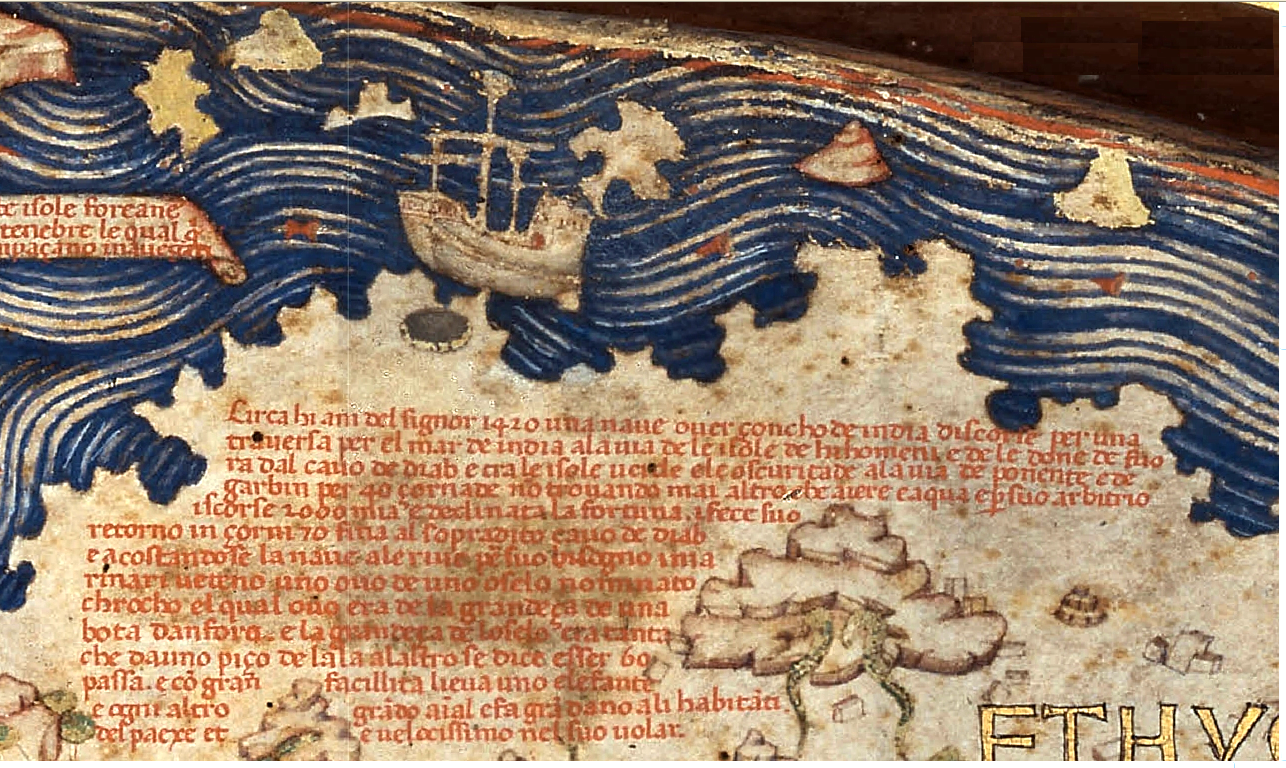 te isole foreane
tenebre le qual
Circa hi ani del signor 1420 una naue ouer çoncho de india discorse per una
trauersa per el mar de india a la uia de le isole de hihomeni e de le done de fuo
ra dal cauo de diab e tra le isole uerde e le oscuritade a la uia de ponente e de
garbin per 40 çornade nõ trouando mai altro che aiere e aqua e p suo arbitrio
iscorse 2000 mia e declinata la fortuna i fece suo
retorno in çorni 70 fina al sopradito cauo de diab
e acostandose la naue a le riue p suo bisogno i ma
rinari ueteno uno ouo de uno oselo nominato
chrocho el qual ouo era de la grandeça de una
bota danfora e la grandeça de loselo era tanta
che dauno piço de lala a laltro se dice esser 60
passa. e cõ gran facillita lieua uno elefante
e ogni altro grãdo aial e fa grã dano a li habitãti
del paexe et e uelocissimo nel suo uolar.
ETHY